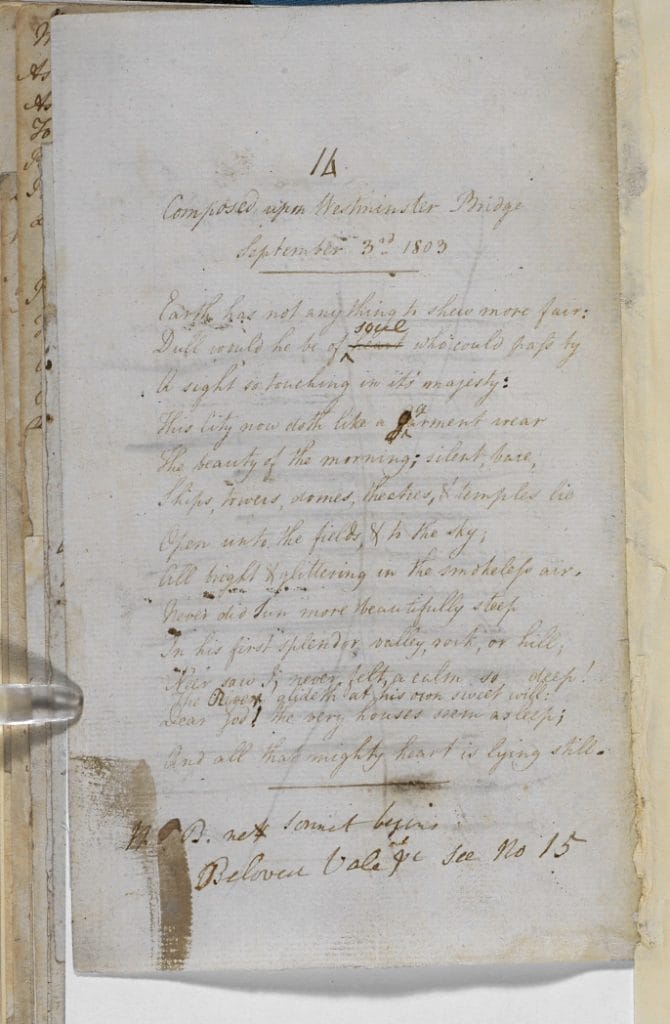 14
Composed upon Westminster Bridge
September 3rd 1803
Earth has not any thing to shew more fair:
Dull would he be of heart soul who could pass by
A sight so touching in it's majesty:
This City now doth like a garment wear
The beauty of the morning; silent, bare,
Ships, towers, domes, theatres, & temples lie
Open unto the fields, & to the sky;
All bright & glittering in the smokeless air.
Never did Sun more beautifully steep
In his first splendor valley, rock, or hill;
Ne'er saw I, never felt, a calm so deep!
The River glideth at his own sweet will:
Dear God! the very houses seem asleep;
And all that mighty heart is lying still.
N.B. next Sonnet begins
Beloved Vale &c see No 15